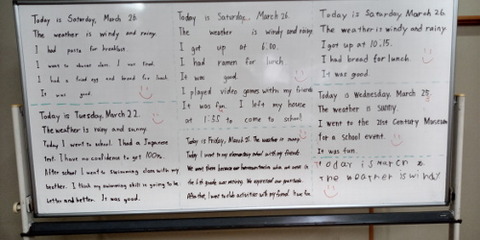 Today is Saturday, March 26.
The weather is windy and rainy.
I had pasta for breakfast.
I want to dinner, I was food.
I had a fried egg and bread for lunch.
It was good.
Today is Tuesday, March 22.
The weather is rainy and sunny.
Today I went to school. I had a Japanese
test. I have no confidence to get 100%.
After school I went to swimming class with my
brother. I think my swimming skill is going to be
better and better. It was good.
Today is Saturday, March 26.
The weather is windy and rainy.
I got up at 6:00.
I had ramen for lunch
It was good.
I played video games with my friend
It was fun. I left my house
at 1:35 to come to school.
Today is Friday, March 25. The weather is sunny.
Today I went to my elementary school with my friends.
We went there because our homeroom teacher who we were in
the 6th grade was moving. We expressed our gratitude.
After that, I went to club activities with my friend.
Today is Saturday, March 26.
The weather is windy and rainy.
I got up at 10:15.
I had bread for lunch.
It was good.
Today is Wednesday, March 23.
The weather is sunny.
I went to the 21st Century Museum
for a school event.
It was fun.
Today is March 2
The weather is windy.